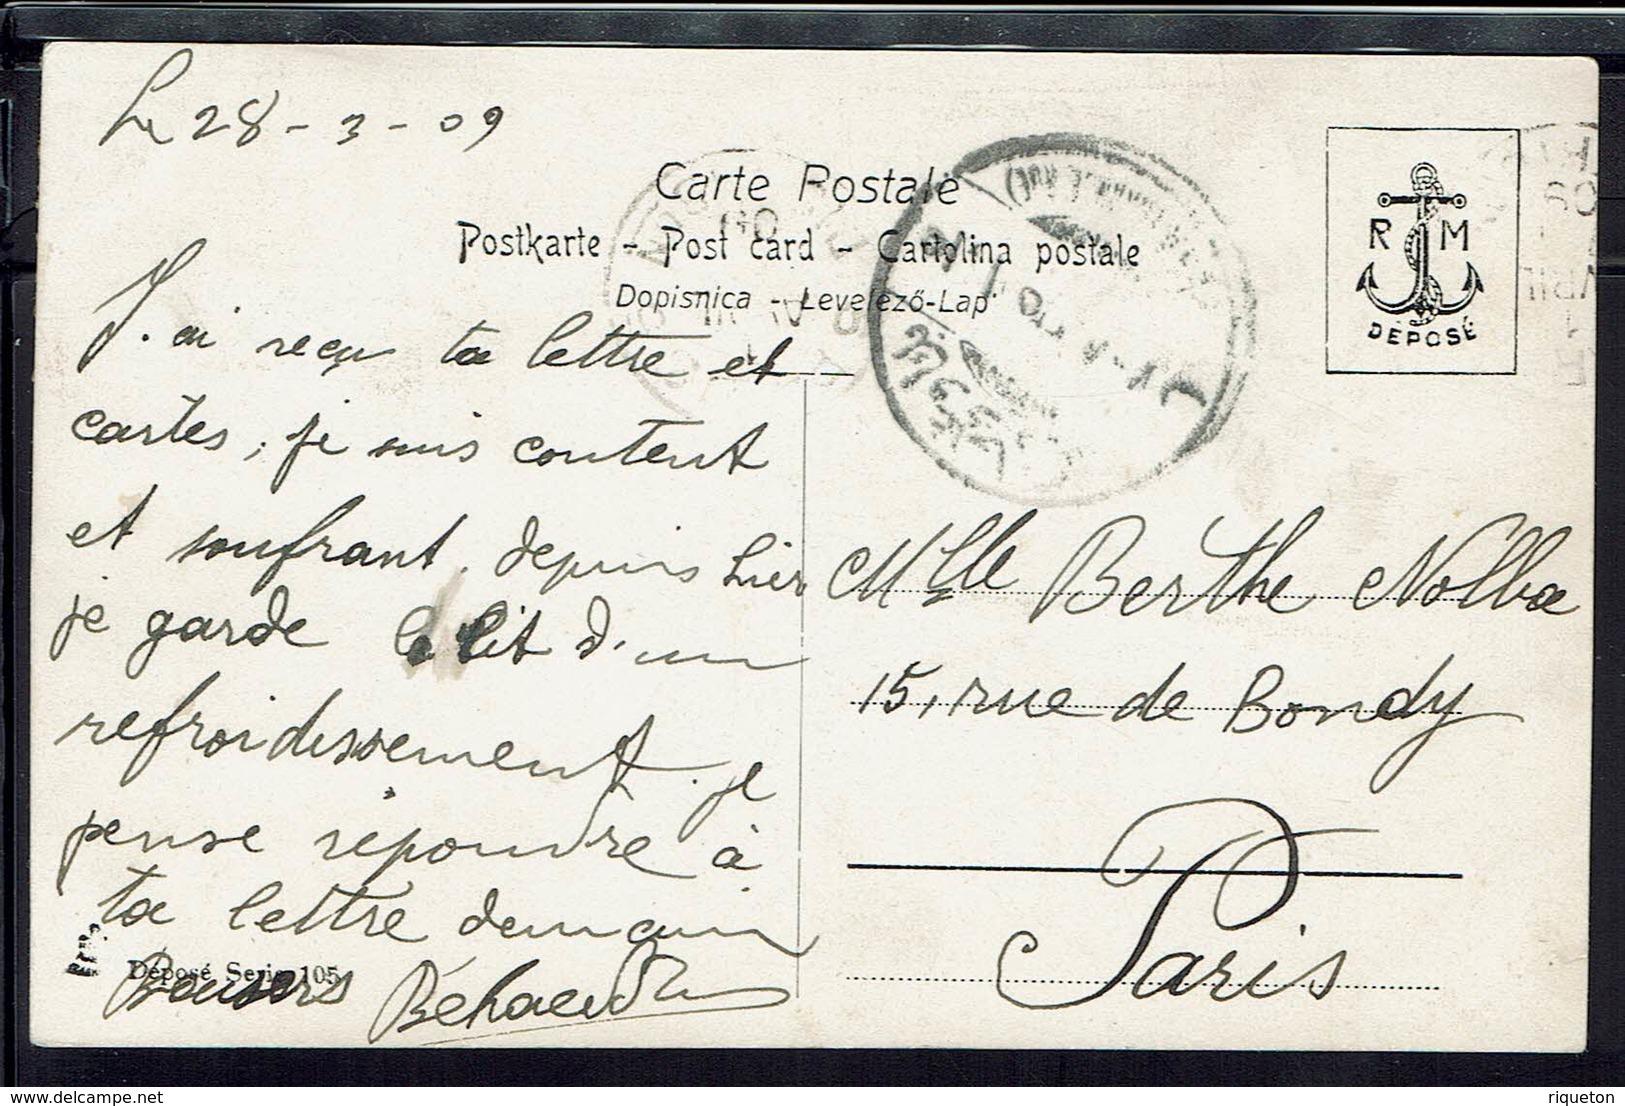 Le 28 - 3 - 09
Carte Postale
Postkarte - Post card - Cartolina postale
Dopisnica - Levelező-Lap
R M
DÉPOSÉ
J'ai reçu ta lettre et
cartes, je suis content
et souffrant. depuis hier
je garde le lit d'un
refroidissement. je
pense répondre à
ta lettre demain
Déposé Serie 105
Baisers
Mlle Berthe Nolba
15, rue de Bondy
Paris
riqueton